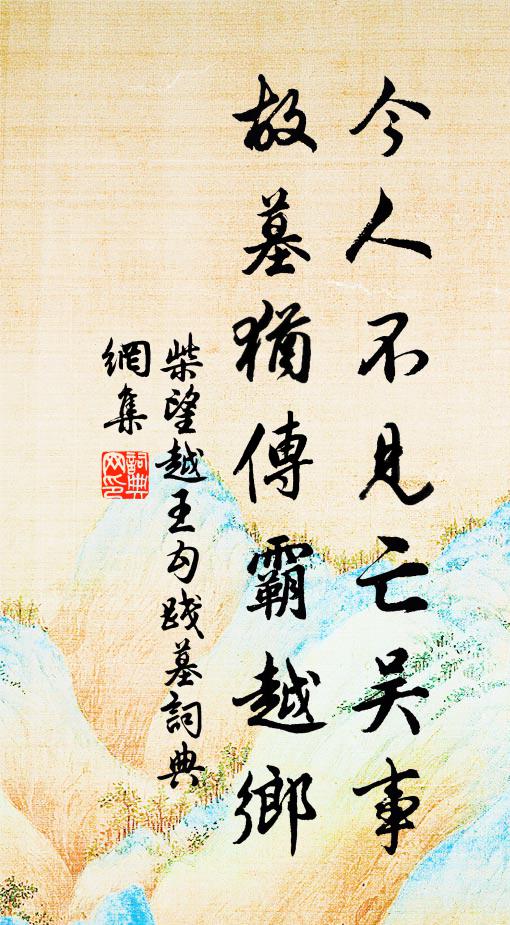 今人不見亡吴事
故墓猶傳霸越鄉
柴望越王勾踐墓詞典
網集
詞典
网印